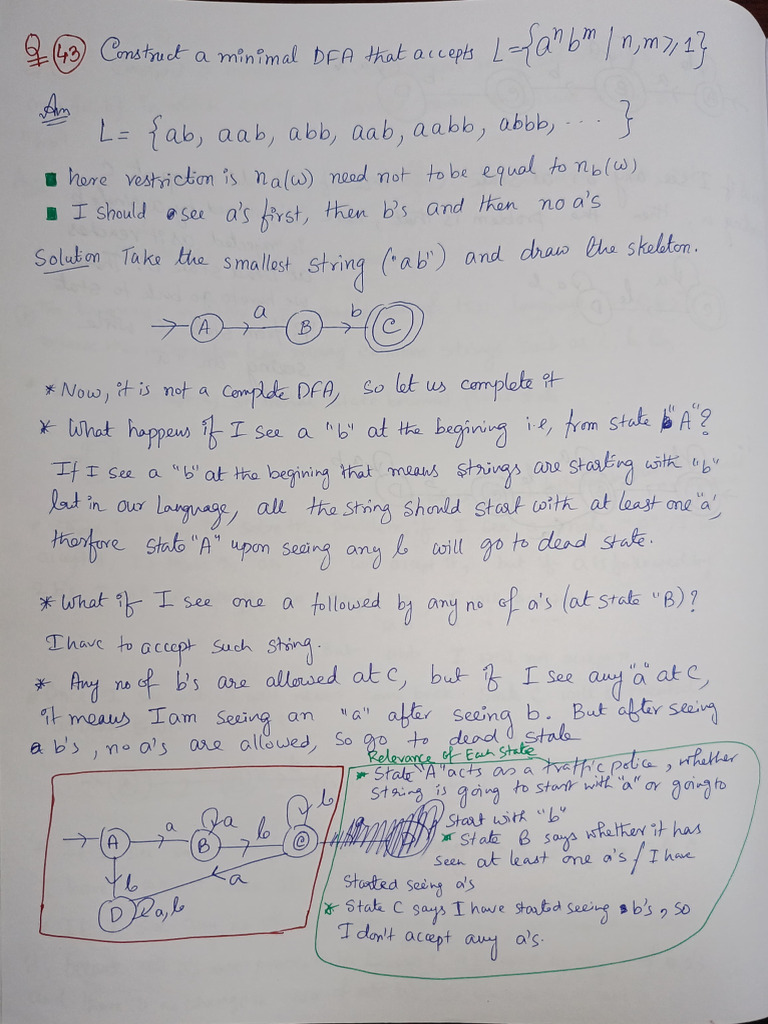 Q 43 Construct a minimal DFA that accepts L={aⁿbᵐ | n,m≥1}
Ans
L = {ab, aab, abb, aab, aabb, abbb, .... }
here restriction is na(w) need not to be equal to nb(w)
I should see a's first, then b's and then no a's
Solution Take the smallest string ("ab") and draw the skeleton.
A a B b C
* Now, it is not a complete DFA, so let us complete it
* What happens if I see a "b" at the begining i.e, from state "A"?
If I see a "b" at the begining that means strings are starting with "b"
but in our Language, all the string should start with at least one "a",
therfore state "A" upon seeing any b will go to dead state.
* What if I see one a followed by any no of a's (at state "B)?
I have to accept such string.
* Any no of b's are allowed at C, but if I see any "a" at C,
it means I am seeing an "a" after seeing b. But after seeing
b's, no a's are allowed, so go to dead state
Relevance of Each State
* State "A" acts as a traffic police, whether
string is going to start with "a" or going to
start with "b"
* State B says whether it has
seen at least one a's / I have
started seeing a's
* State C says I have started seeing b's, so
I don't accept any a's.
A a B a b C b
b a
D a,b